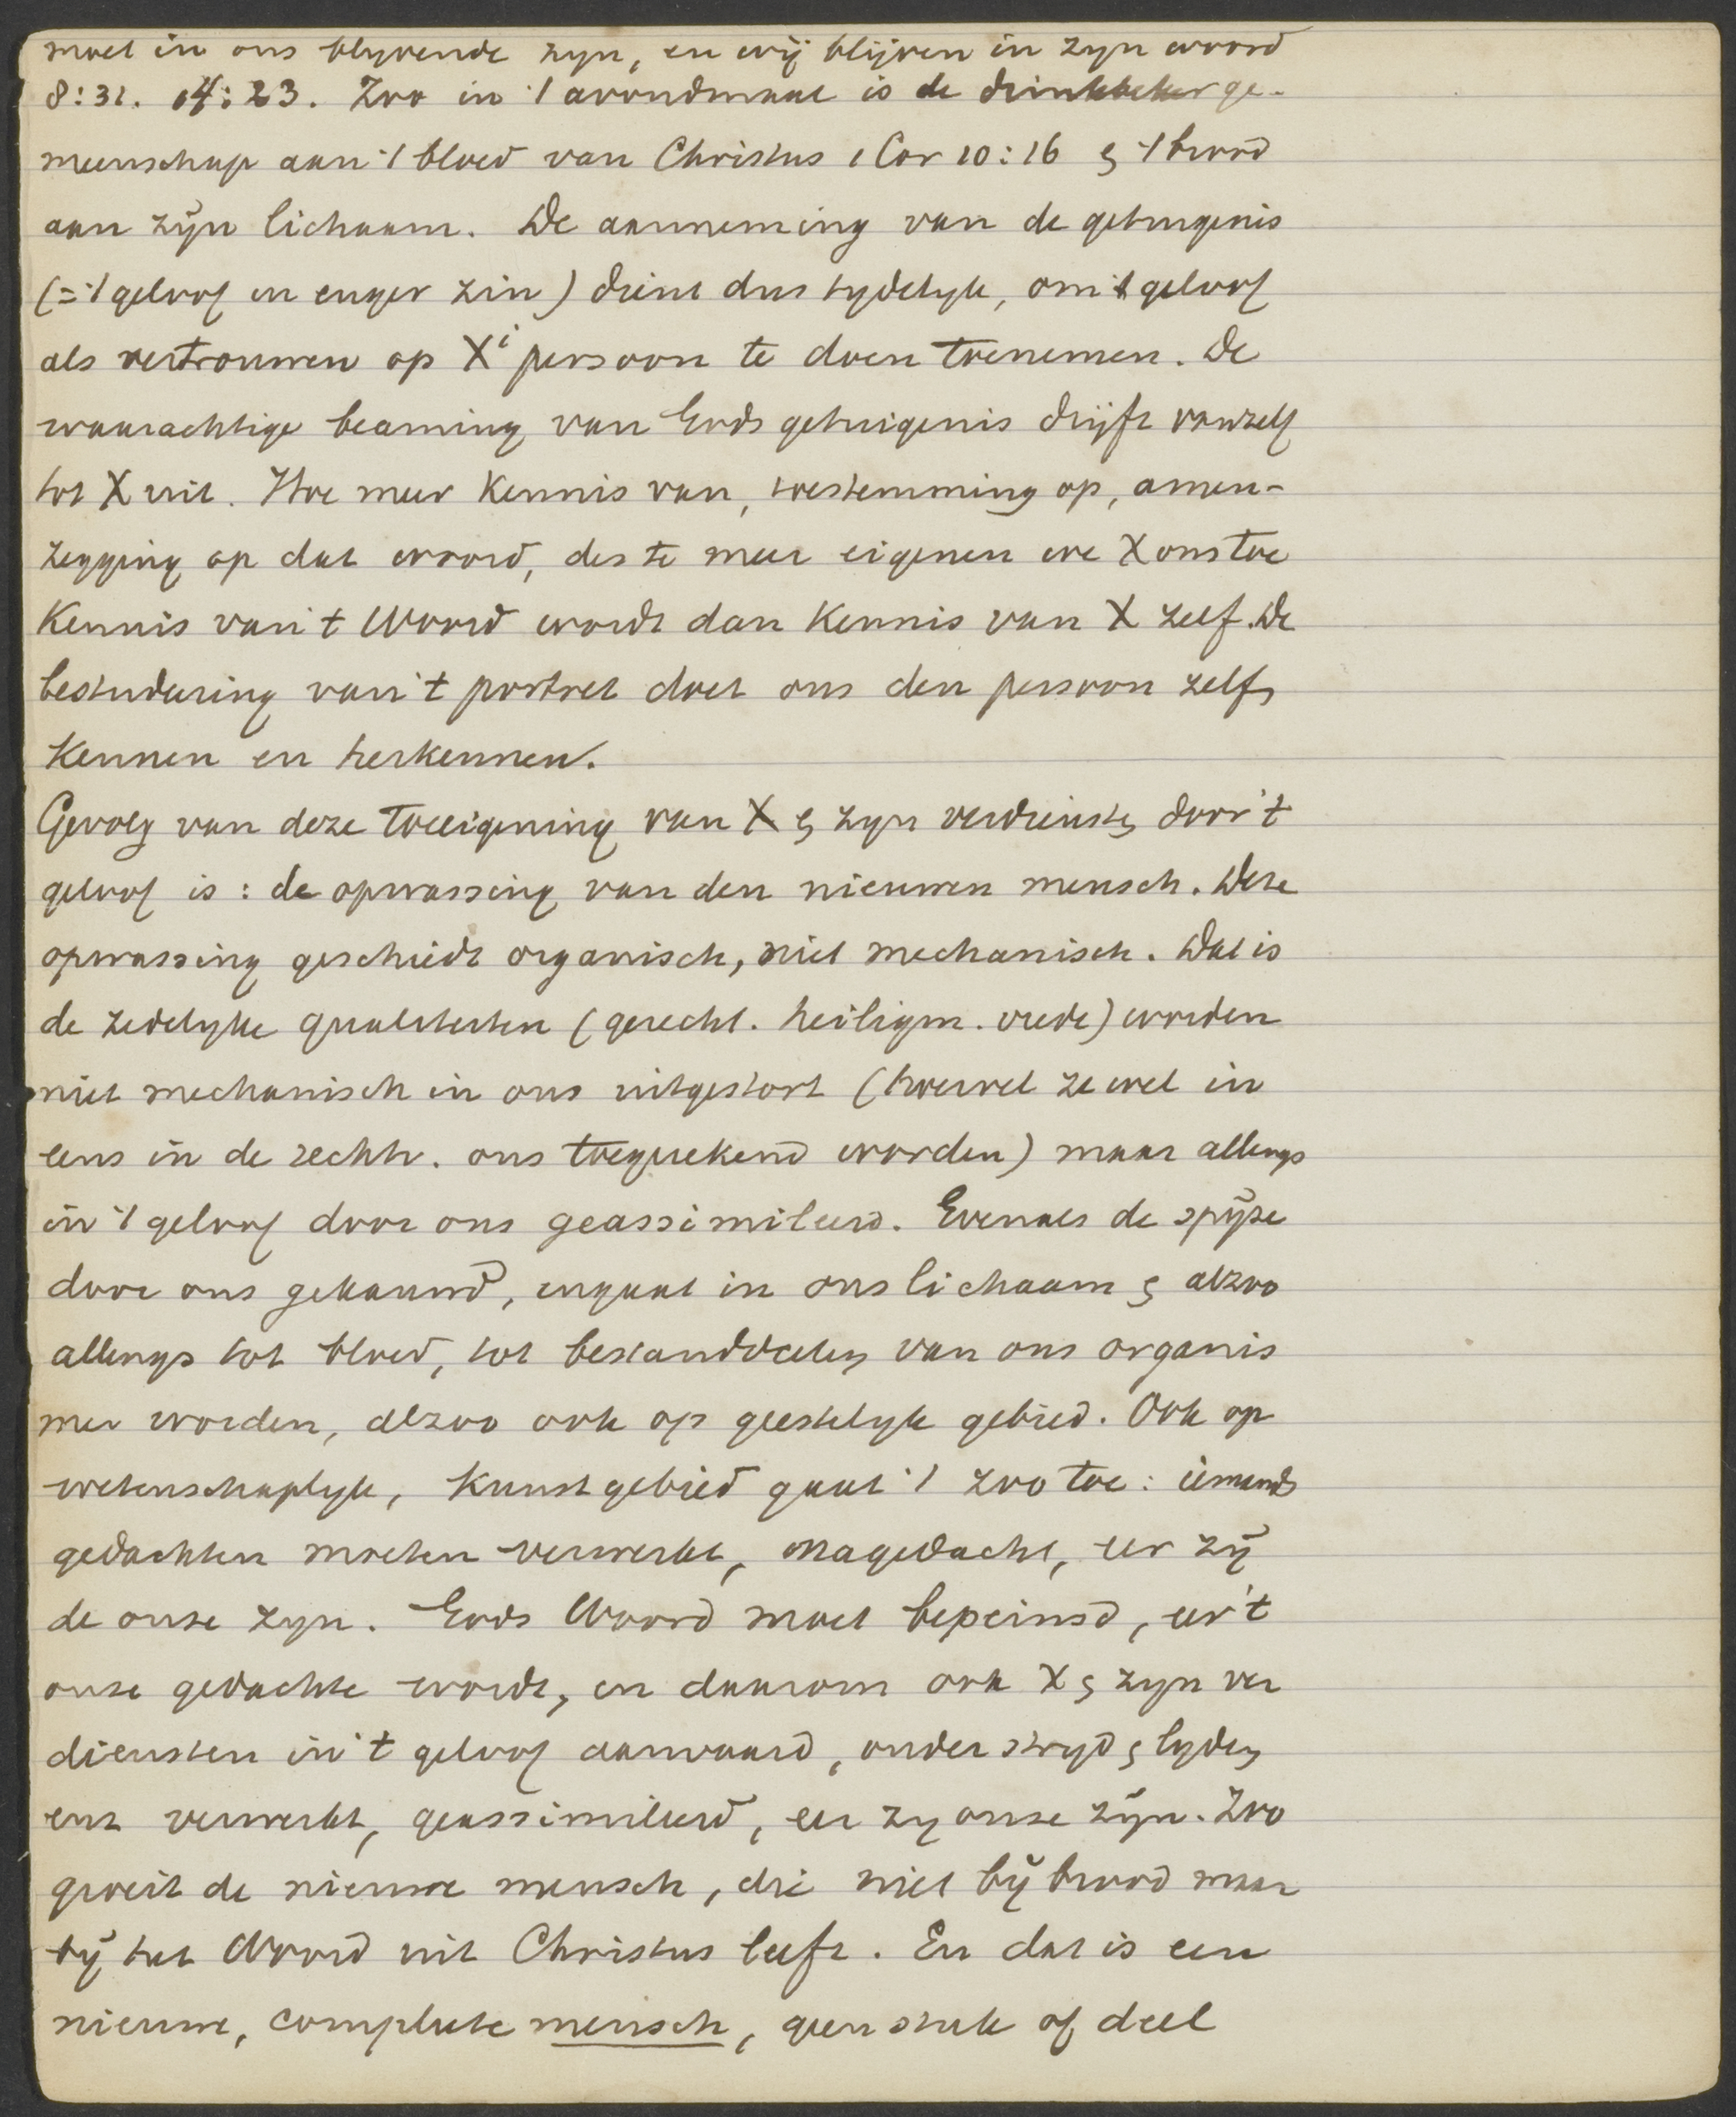 moet in ons blyvende zyn, en wij blijven in zyn woord
8:31. 14:23. Zoo in 't avondmaal is de drinkbeker ge-
meenschap aan 't bloed van Christus 1 Cor 10:16 & 't brood
aan zijn lichaam. De aanneming van de getuigenis
(= 't geloof in enger zin) dient dus tydelyk, om 't geloof
als vertrouwen op Xi persoon te doen toenemen. De
waarachtige beaming van Gods getuigenis drijft vanzelf
tot X uit. Hoe meer kennis van, toestemming op, amen-
zegging op dat woord, des te meer eigenen we X ons toe
Kennis van 't Woord wordt dan kennis van X zelf. De
bestudeering van 't portret doet ons den persoon zelf,
kennen en herkennen.
Gevolg van deze toeeigening van X & zyn verdiensten door 't
geloof is: de opwassing van den nieuwen mensch. Deze
opwassing geschiedt organisch, niet mechanisch. Dat is
de zedelyke qualiteiten (gerecht. heiligm. vrede) worden
niet mechanisch in ons uitgestort (hoewel ze wel in
eens in de rechtv. ons toegerekend worden) maar allengs
in 't geloof door ons geassimileerd. Evenals de spijze
door ons gekauwd, ingaat in ons lichaam & alzoo
allengs tot bloed, tot bestanddeelen van ons organis
me worden, alzoo ook op geestelyk gebied. Ook op
wetenschaplyk, kunstgebied gaat 't zoo toe: iemands
gedachten moeten verwerkt, nagedacht, eer zij
de onze zyn. Gods Woord moet bepeinsd, eer 't
onze gedachte wordt, en daarom ook X & zyn ver
diensten in 't geloof aanvaard, onder stryd & lyden
enz verwerkt, geassimileerd, eer zy onze zijn. Zoo
groeit de nieuwe mensch, die niet bij brood maar
bij het Woord uit Christus leeft. En dat is een
nieuwe, complete mensch, geen stuk of deel